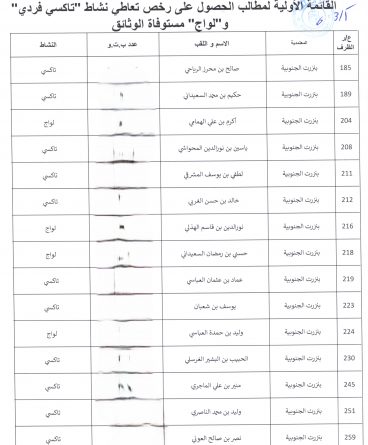 القائمة الأولية لمطالب الحصول على رخص تعاطي نشاط "تاكسي فردي"
و"لواج" مستوفاة الوثائق
3/1
6
ع/ر الظرف معتمدية الاسم و اللقب عدد ب.ت.و النشاط
185 بنزرت الجنوبية صالح بن محرز الرياحي تاكسي
189 بنزرت الجنوبية حكيم بن محمد السعيداني تاكسي
204 بنزرت الجنوبية أكرم بن علي الهمامي لواج
208 بنزرت الجنوبية ياسين بن نورالدين المحواشي تاكسي
211 بنزرت الجنوبية لطفي بن يوسف المشرقي تاكسي
212 بنزرت الجنوبية خالد بن حسن الغربي تاكسي
216 بنزرت الجنوبية نورالدين بن قاسم الهذلي لواج
218 بنزرت الجنوبية حسني بن رمضان السعيداني تاكسي
219 بنزرت الجنوبية عماد بن عثمان العباسي تاكسي
223 بنزرت الجنوبية يوسف بن شعبان تاكسي
224 بنزرت الجنوبية وليد بن حمدة العباسي لواج
230 بنزرت الجنوبية الحبيب بن البشير الغرسلي تاكسي
245 بنزرت الجنوبية منير بن علي الماجري تاكسي
251 بنزرت الجنوبية وليد بن محمد الناصري تاكسي
259 بنزرت الجنوبية نصر بن صالح العوني تاكسي